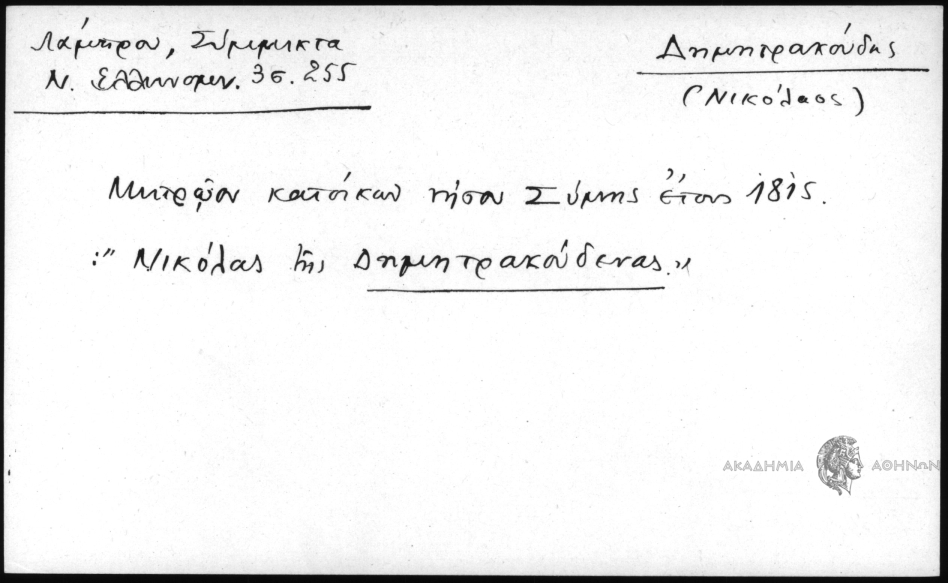 Λάμπρου, Σύμμικτα
Ν. Ελληνομν. 3σ. 255
Δημητρακούδης
(Νικόλαος)
Μητρῷον κατοίκων νήσου Σύμης ἔτους 1815.
:" Νικόλας τῆς Δημητρακούδενας."
ΑΚΑΔΗΜΙΑ ΑΘΗΝΩΝ